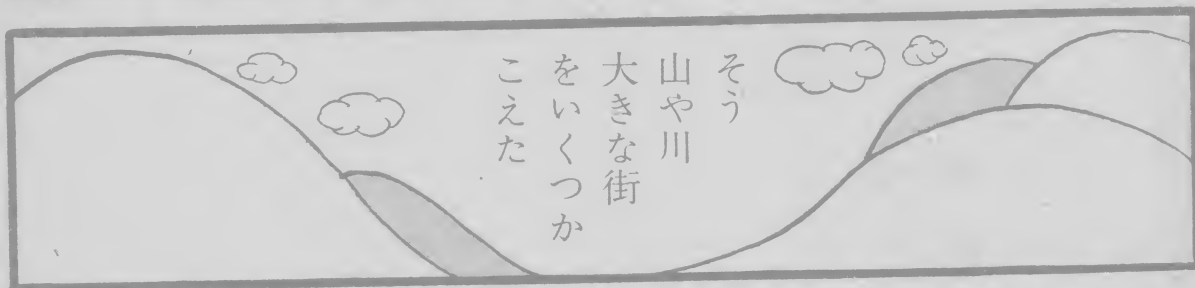 そう
山や川
大きな街
をいくつか
こえた